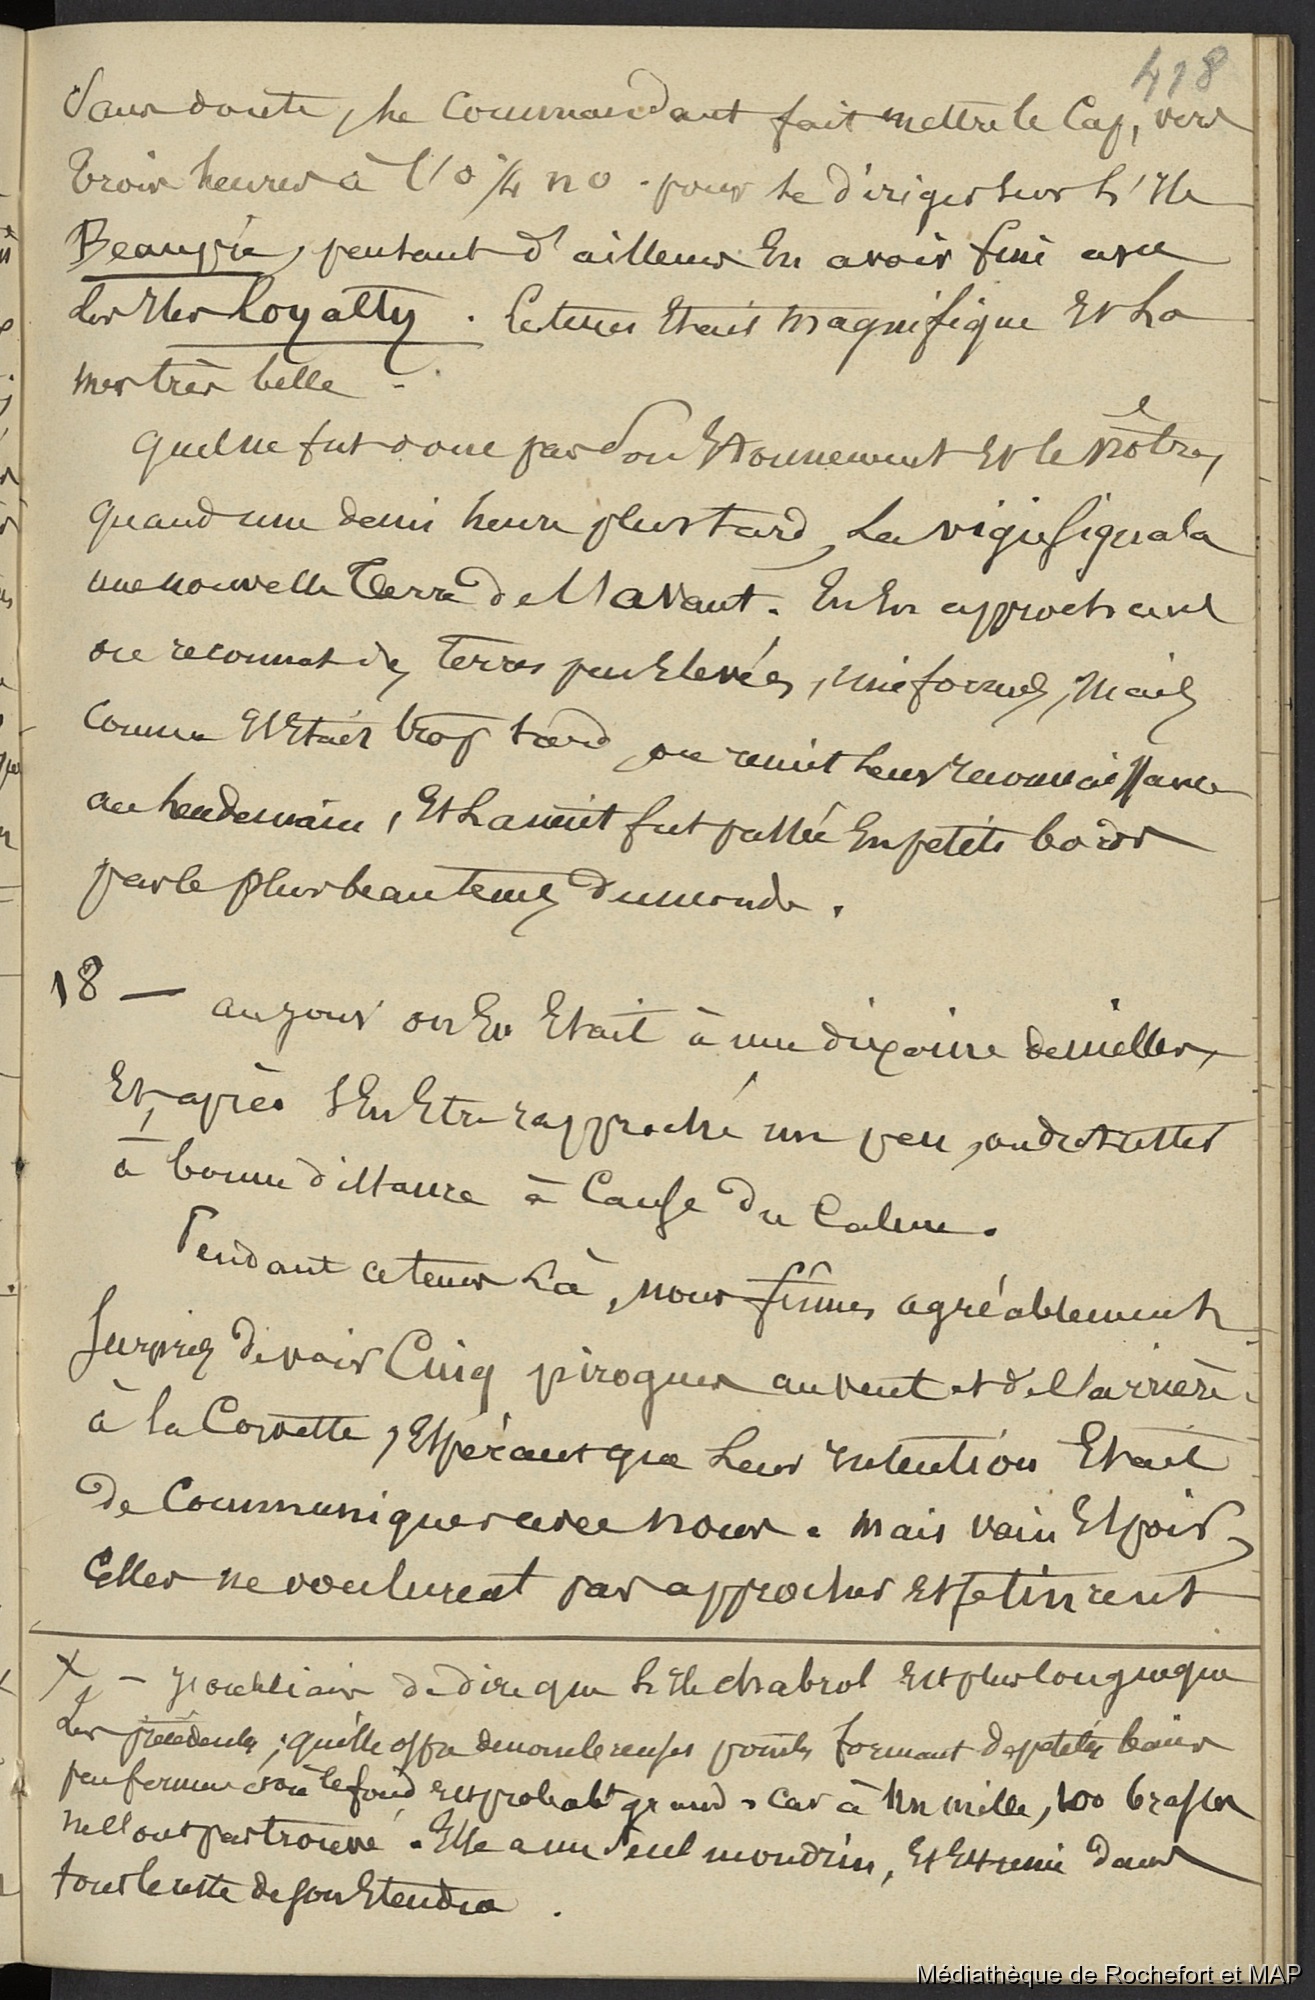 418
Sans doute, le Commandant fait mettre le Cap, vers
trois heures à l'O ¼ NO. pour se diriger sur l'Ile
Beaupré, pensant d'ailleurs En avoir fini avec
les Iles Loyalty. Le tems Etait magnifique Et la
mer très belle.
Quel ne fut donc pas Son Etonnement Et le nôtre,
quand une demi heure plus tard, La vigie Signala
une nouvelle Terre de l'avant. En En approchant
on reconnut des Terres peu Elevées, uniformes, Mais
comme Il Etait trop tard, on remit leur reconnaissance
au lendemain, Et La nuit fut passée En petits bords
par le plus beau tems du monde.
18 — au jour on En Etait à une dixaine de milles,
Et, après s'En Etre rapproché un peu, on dut rester
à bonne distance à Cause Du Calme.
Pendant ce tems Là, nous fûmes agréablement
Surpris de voir Cinq pirogues au vent et de l'arrière
à la Corvette, Espérant que Leur intention Etait
de Communiquer avec nous. Mais vain Espoir,
Elles ne voulurent pas approcher et se tinrent
X — J'oubliais de dire que l'Ile Chabrol Est plus longue que
Les précédentes; qu'elle offre de nombreuses pointes formant de petites baies
peu fermées où le fond Est probablt grand. Car à Un mille, 100 brasses
ne l'ont pas trouvé. Elle a un Seul mondrin, Et Est unie dans
tout le reste de Son Etendue.
Médiathèque de Rochefort et MAP